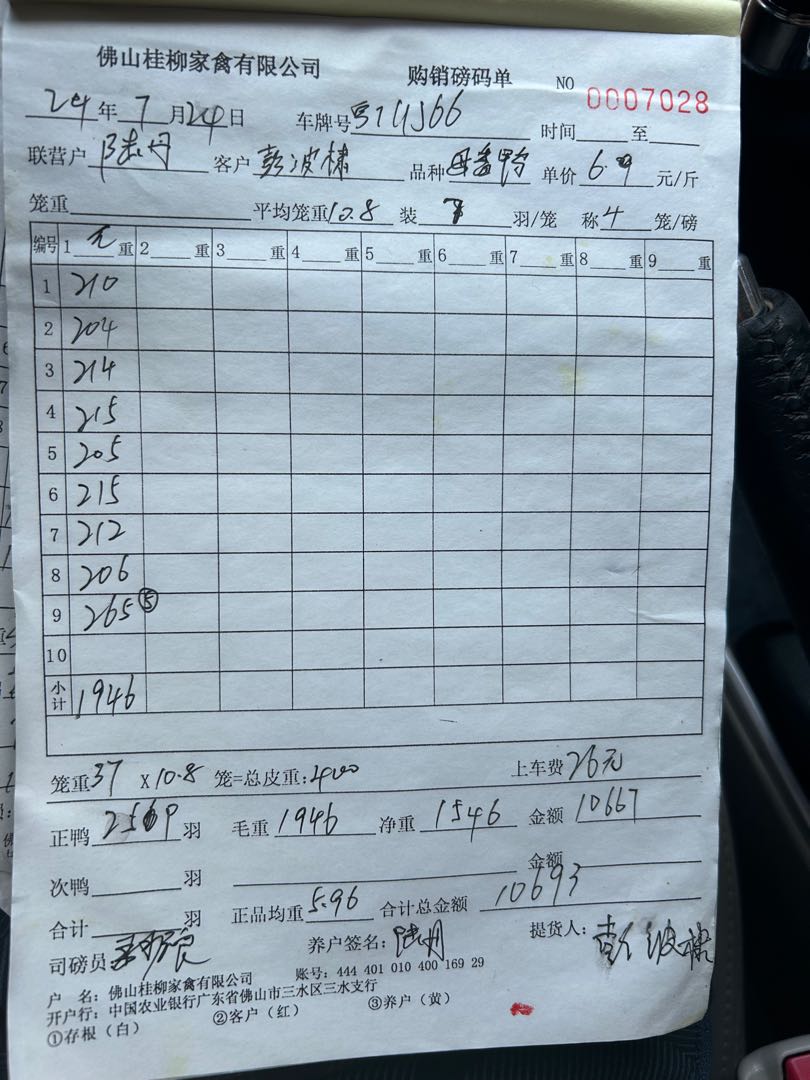 佛山桂柳家禽有限公司 购销磅码单 NO 0007028
24年7月24日 车牌号 时间 至
联营户 陆丹 客户 彭波棣 品种 母番鸭 单价 6.9 元/斤
笼重 平均笼重 10.8 装 7 羽/笼 称 4 笼/磅
编号 1 毛 重 2 重 3 重 4 重 5 重 6 重 7 重 8 重 9 重
1 210
2 204
3 214
4 215
5 205
6 215
7 212
8 206
9 265 ⑤
10
小计 1946
笼重 37 X 10.8 笼=总皮重: 400 上车费 26元
正鸭 羽 毛重 1946 净重 1546 金额 10667
次鸭 羽 金额
合计 羽 正品均重 5.96 合计总金额 10693
司磅员 养户签名: 陆丹 提货人: 彭波棣
户 名: 佛山桂柳家禽有限公司 账号: 444 401 010 400 169 29
开户行: 中国农业银行广东省佛山市三水区三水支行
①存根（白） ②客户（红） ③养户（黄）